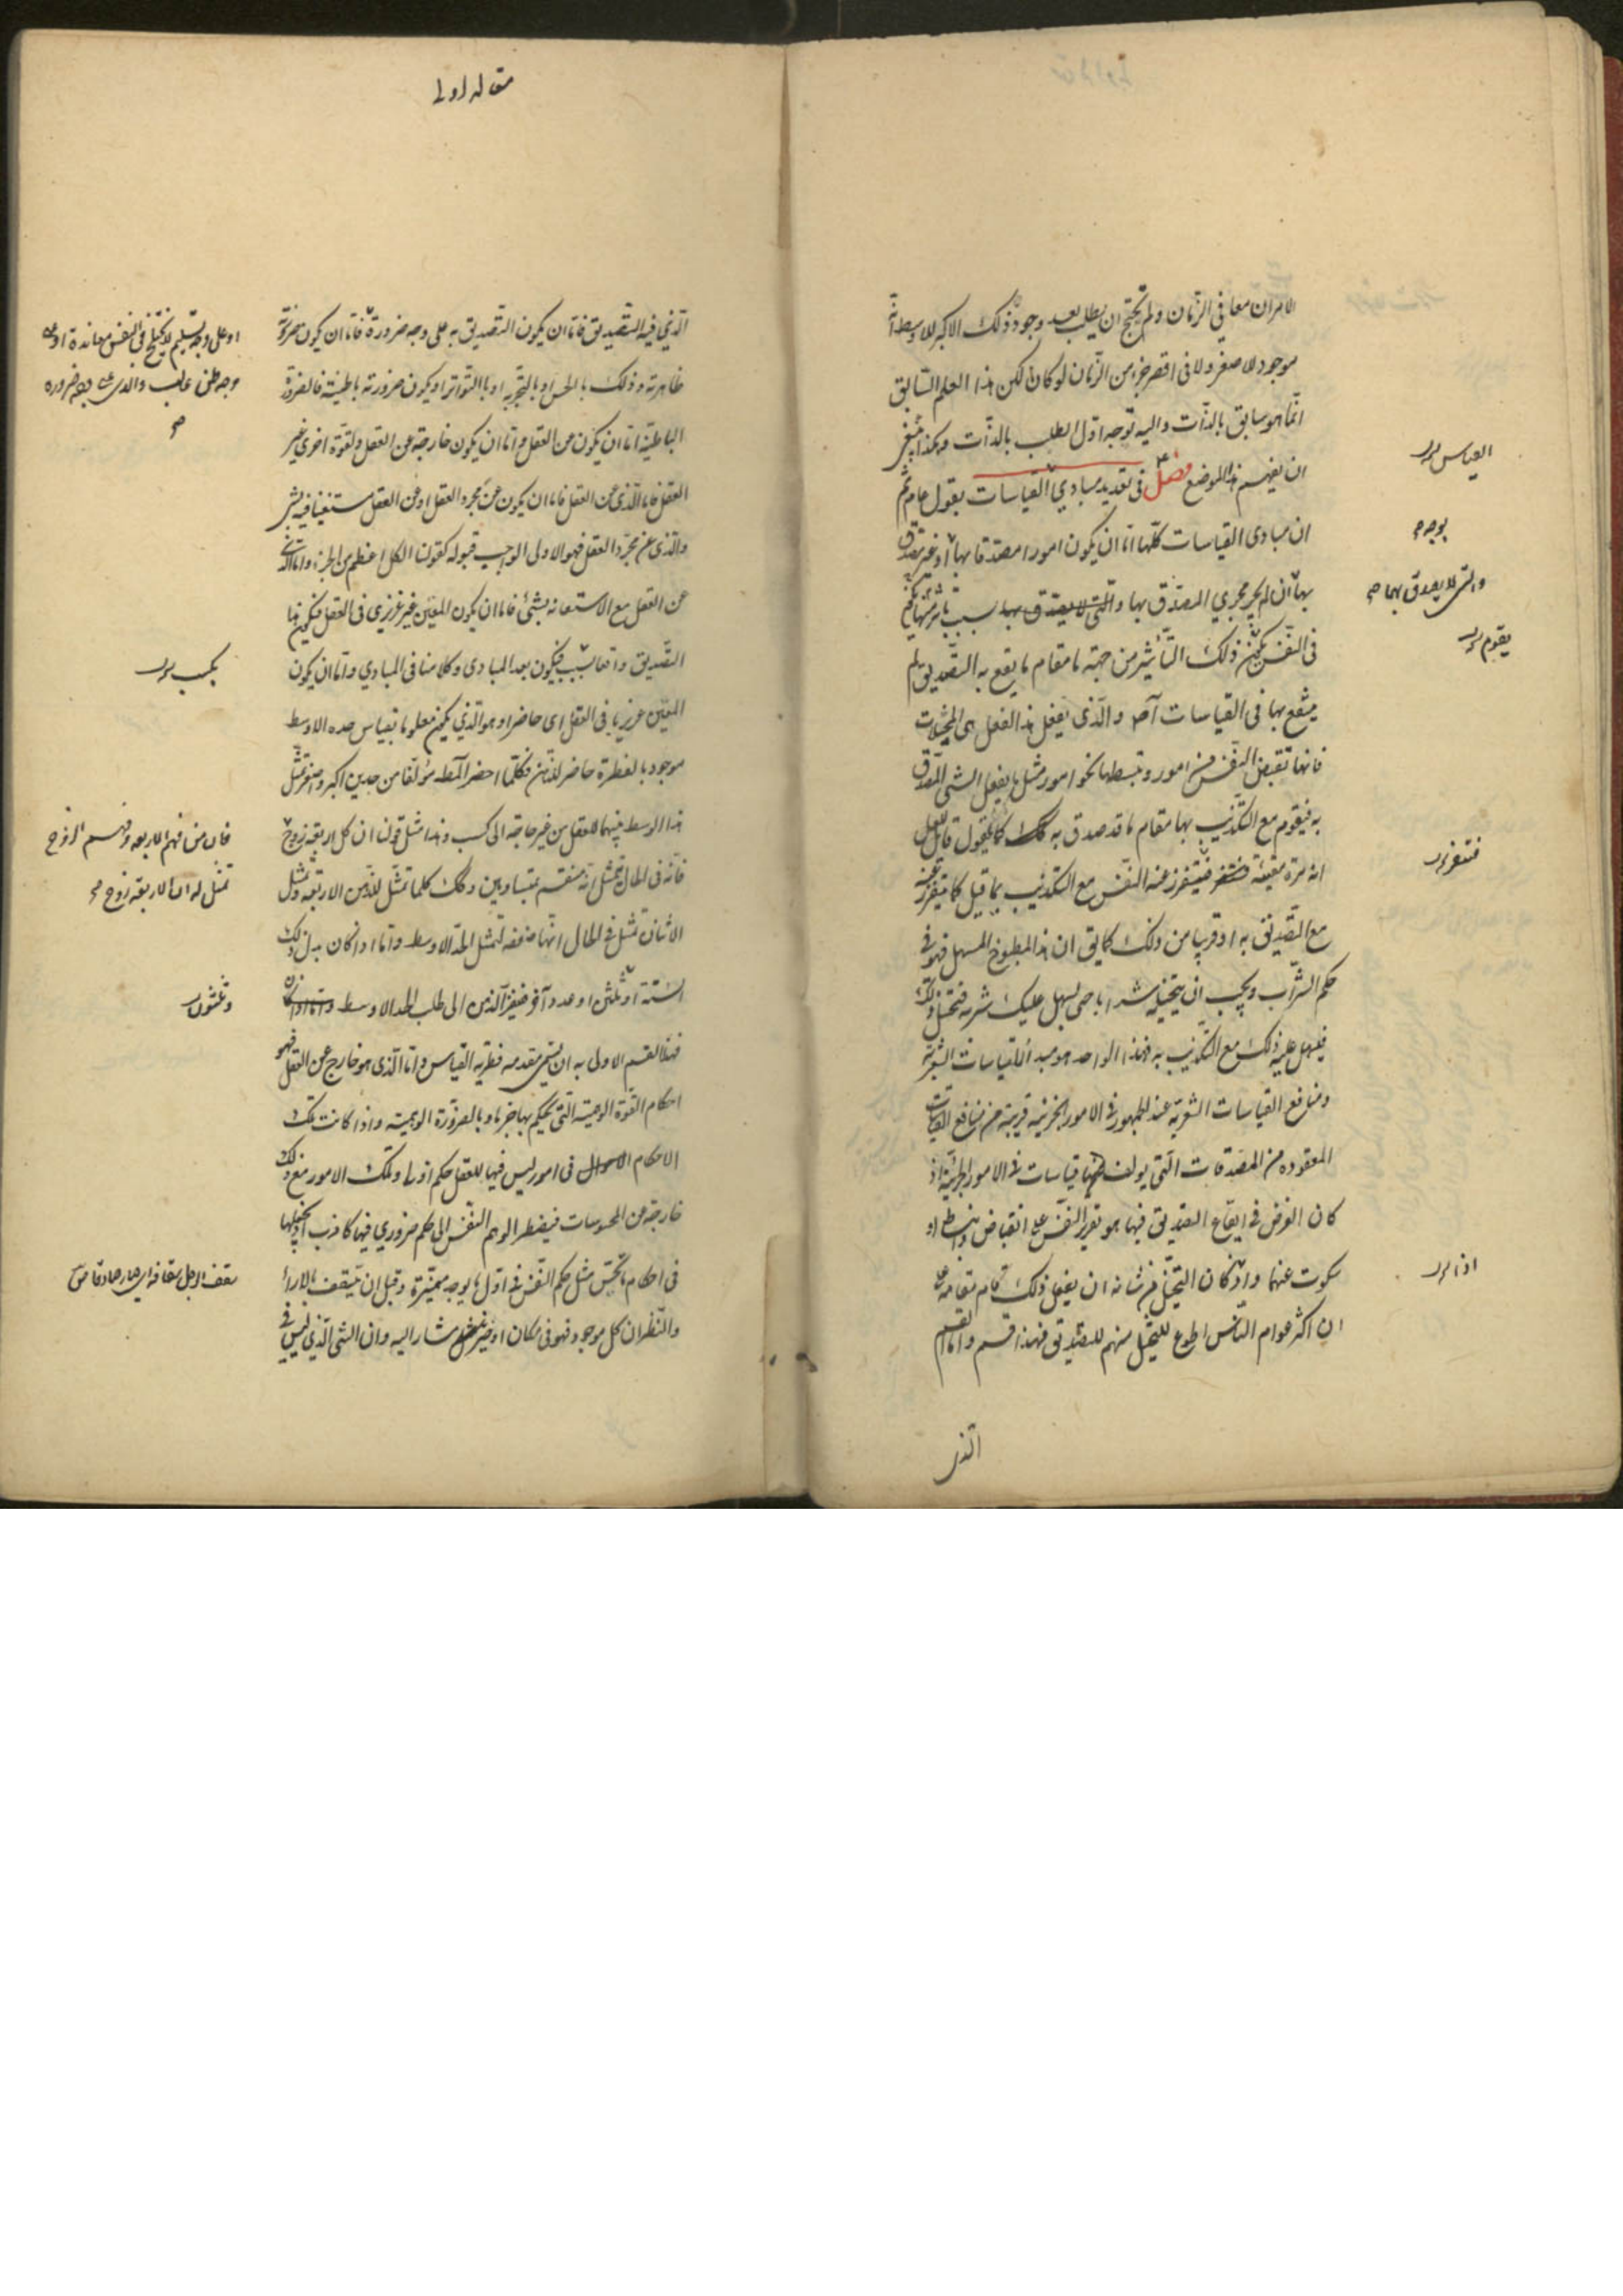 الامران معا في الزمان ولم يحتج ان يطلب بعد وجود ذلك الاكبر للاوسط انه
موجود للاصغر ولا في اقصر جزء من الزمان لو كان لكن هذا العلم السابق
انما هو سابق بالذات واليه توجه اول الطلب بالذات وهكذا ينبغي
ان يفهم هذا الموضع فصل في تعديد مبادي القياسات بقول عام
ان مبادي القياسات كلها اما ان يكون امورا مصدقا بها او غير مصدق
بها ان لم يجر مجري المصدق بها والتي لا يصدق بها بسبب تاثير منها يكون
في النفس يكون ذلك التأثير من جهة ما مقام ما يقع به التصديق لم
ينتفع بها في القياسات اصلا والذي يفعل هذا الفعل هي المخيلات
فانها تقبض النفس عن امور وتبسطها نحو امور مثل ما يفعل الشي المصدق
به فيقوم مع التكذيب بها مقام ما قد صدق به كما يقول قائل للعسل
انه مرة مقيئة فيتقزز عنه النفس مع التكذيب بما قيل كما يتقزز عنه
مع التصديق به او قريبا من ذلك كما يق ان هذا المطبوخ المسهل هو في
حكم الشراب ويجب ان يتخيله شرابا حتي يسهل عليك شربه فتخيل ذلك
فيسهل عليه ذلك مع التكذيب به فهذا الواحد هو مبدأ للقياسات الشعرية
ومنافع القياسات الشعرية عند الجمهور في الامور الجزئية قريبة من منافع القياسات
المعقوده من المصدقات التي يولف منها قياسات في الامور الجزئية اذ
كان الغرض في ايقاع التصديق فيها هو تقرير النفس علي انقباض وانبساط او
سكوت عنهما واذ كان التخيل من شانه ان يفعل ذلك قام مقامه علي
ان اكثر عوام الناس اطوع للتخيل منهم للتصديق فهذا قسم واما القسم
الذي
القياس
بوجه
والتي لا يصدق بها
يقوم
فتتقزز
اذا
مقاله اولي
الذي فيه التصديق فاما ان يكون التصديق به علي وجه ضرورة فاما ان يكون ضرورته
ظاهرية وذلك بالحس او بالتجربه او باالتواتر او يكون ضرورته باطنية فالضرورة
الباطنية اما ان يكون عن العقل واما ان يكون خارجة عن العقل ولقوة اخري غير
العقل فاما الذي عن العقل فاما ان يكون عن مجرد العقل او عن العقل مستعينا فيه بشي
والذي عن مجرد العقل فهو الاولي الواجب قبوله كقولنا الكل اعظم من الجزء واما الذي
عن العقل مع الاستعانه بشئ فاما ان يكون المعين غير غزيري في العقل فيكون هذا
التصديق واقعا بكسب فيكون بعد المبادي وكلامنا في المبادي واما ان يكون
المعين غريزيا في العقل اي حاضرا وهو الذي يكون معلوما بقياس حده الاوسط
موجود بالفطرة حاضر للذهن فكلما احضر المط مؤلفا من حدين اكبر واصغر تمثل
هذا الوسط بينهما للعقل من غير حاجة الي كسب وهذا مثل قولنا ان كل اربعة زوج
فانه في الحال تمثل انه منقسم بمتساويين وكك كلما تمثل للذهن الاربعة وتمثل
الاثنان تمثل في الحال انها ضعفه لتمثل الحد الاوسط واما اذا كان بدل ذلك
الستة او ثلثين او عدد آخر فيفتقر الذهن الي طلب الحد الاوسط
فهذا القسم الاولي به ان يسمي مقدمه فطرية القياس واما الذي هو خارج عن العقل فهو
احكام القوة الوهمية التي يحكم بها جزما وبالضرورة الوهمية واذا كانت تلك
الاحكام الاحوال في امور ليس فيها للعقل حكم اولي وتلك الامور مع ذلك
خارجة عن المحسوسات فيضطر الوهم النفس الي حكم ضروري فيها كاذب اذ يجعلها
في احكام ما يحس مثل حكم النفس في اول ما يوجد مميزة وقبل ان تثقف بالاراء
والنظر ان كل موجود فهو في مكان او حيز مشار اليه وان الشي الذي ليس في
او علي وجه تسليم لا يختلج في النفس معاندة او علي
وجه ظن غالب والذي علي وجه ضروره
صح
يكسب
فان من فهم الاربعه وفهم الزوج
تمثل له ان الاربعة زوج
وثلثون
ثقف الرجل ثقافة اي صار حاذقا